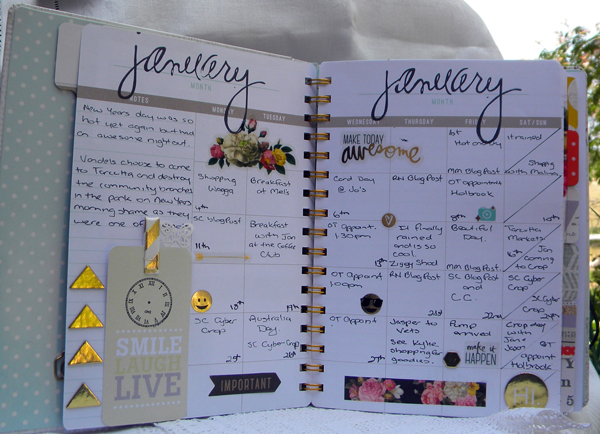 january
MONTH
NOTES
MONDAY
TUESDAY
New Years day was so
hot yet again but had
an awesome night out.
Vandels choose to come
to Tarcutta and destroy
the community branches
in the park on New Years
morning shame as they
were one of
Shopping
Wagga
4th
Breakfast
at Mel's
SC Blog Post
11th
Breakfast
with Jan
at the Coffee
Club
18th
19th
SC Cyber
Crop
25th
Australia
Day
SC Cyber Crop
26th
SMILE
LAUGH
LIVE
IMPORTANT
january
MONTH
WEDNESDAY
THURSDAY
FRIDAY
SAT/SUN
MAKE TODAY
awesome
1st
Hot one
MM Blog Post
it rained
Shopping
with Mum
Card Day
@ Jo's
6th
RN Blog Post
OT appointment
Holbrook
8th
10th
OT Appoint
1:30pm
13th
It finally
rained and
is so
cool.
Ziggy Shod
Beautiful
Day.
MM Blog Post
Tarcutta
Markets
16th
Jan
coming
to Crop
OT Appoint
1:00pm
RN Blog Post
21st
SC Blog Post
and
C.C.
22nd
SC Cyber
Crop
SC Cyber
Crop
OT Appoint
27th
Jasper to
Vets
See Kylie
Shopping for
goodies.
Pump
arrived
make it
HAPPEN
Crop day
with
Jane
Jean
OT
appoint
Holbrook